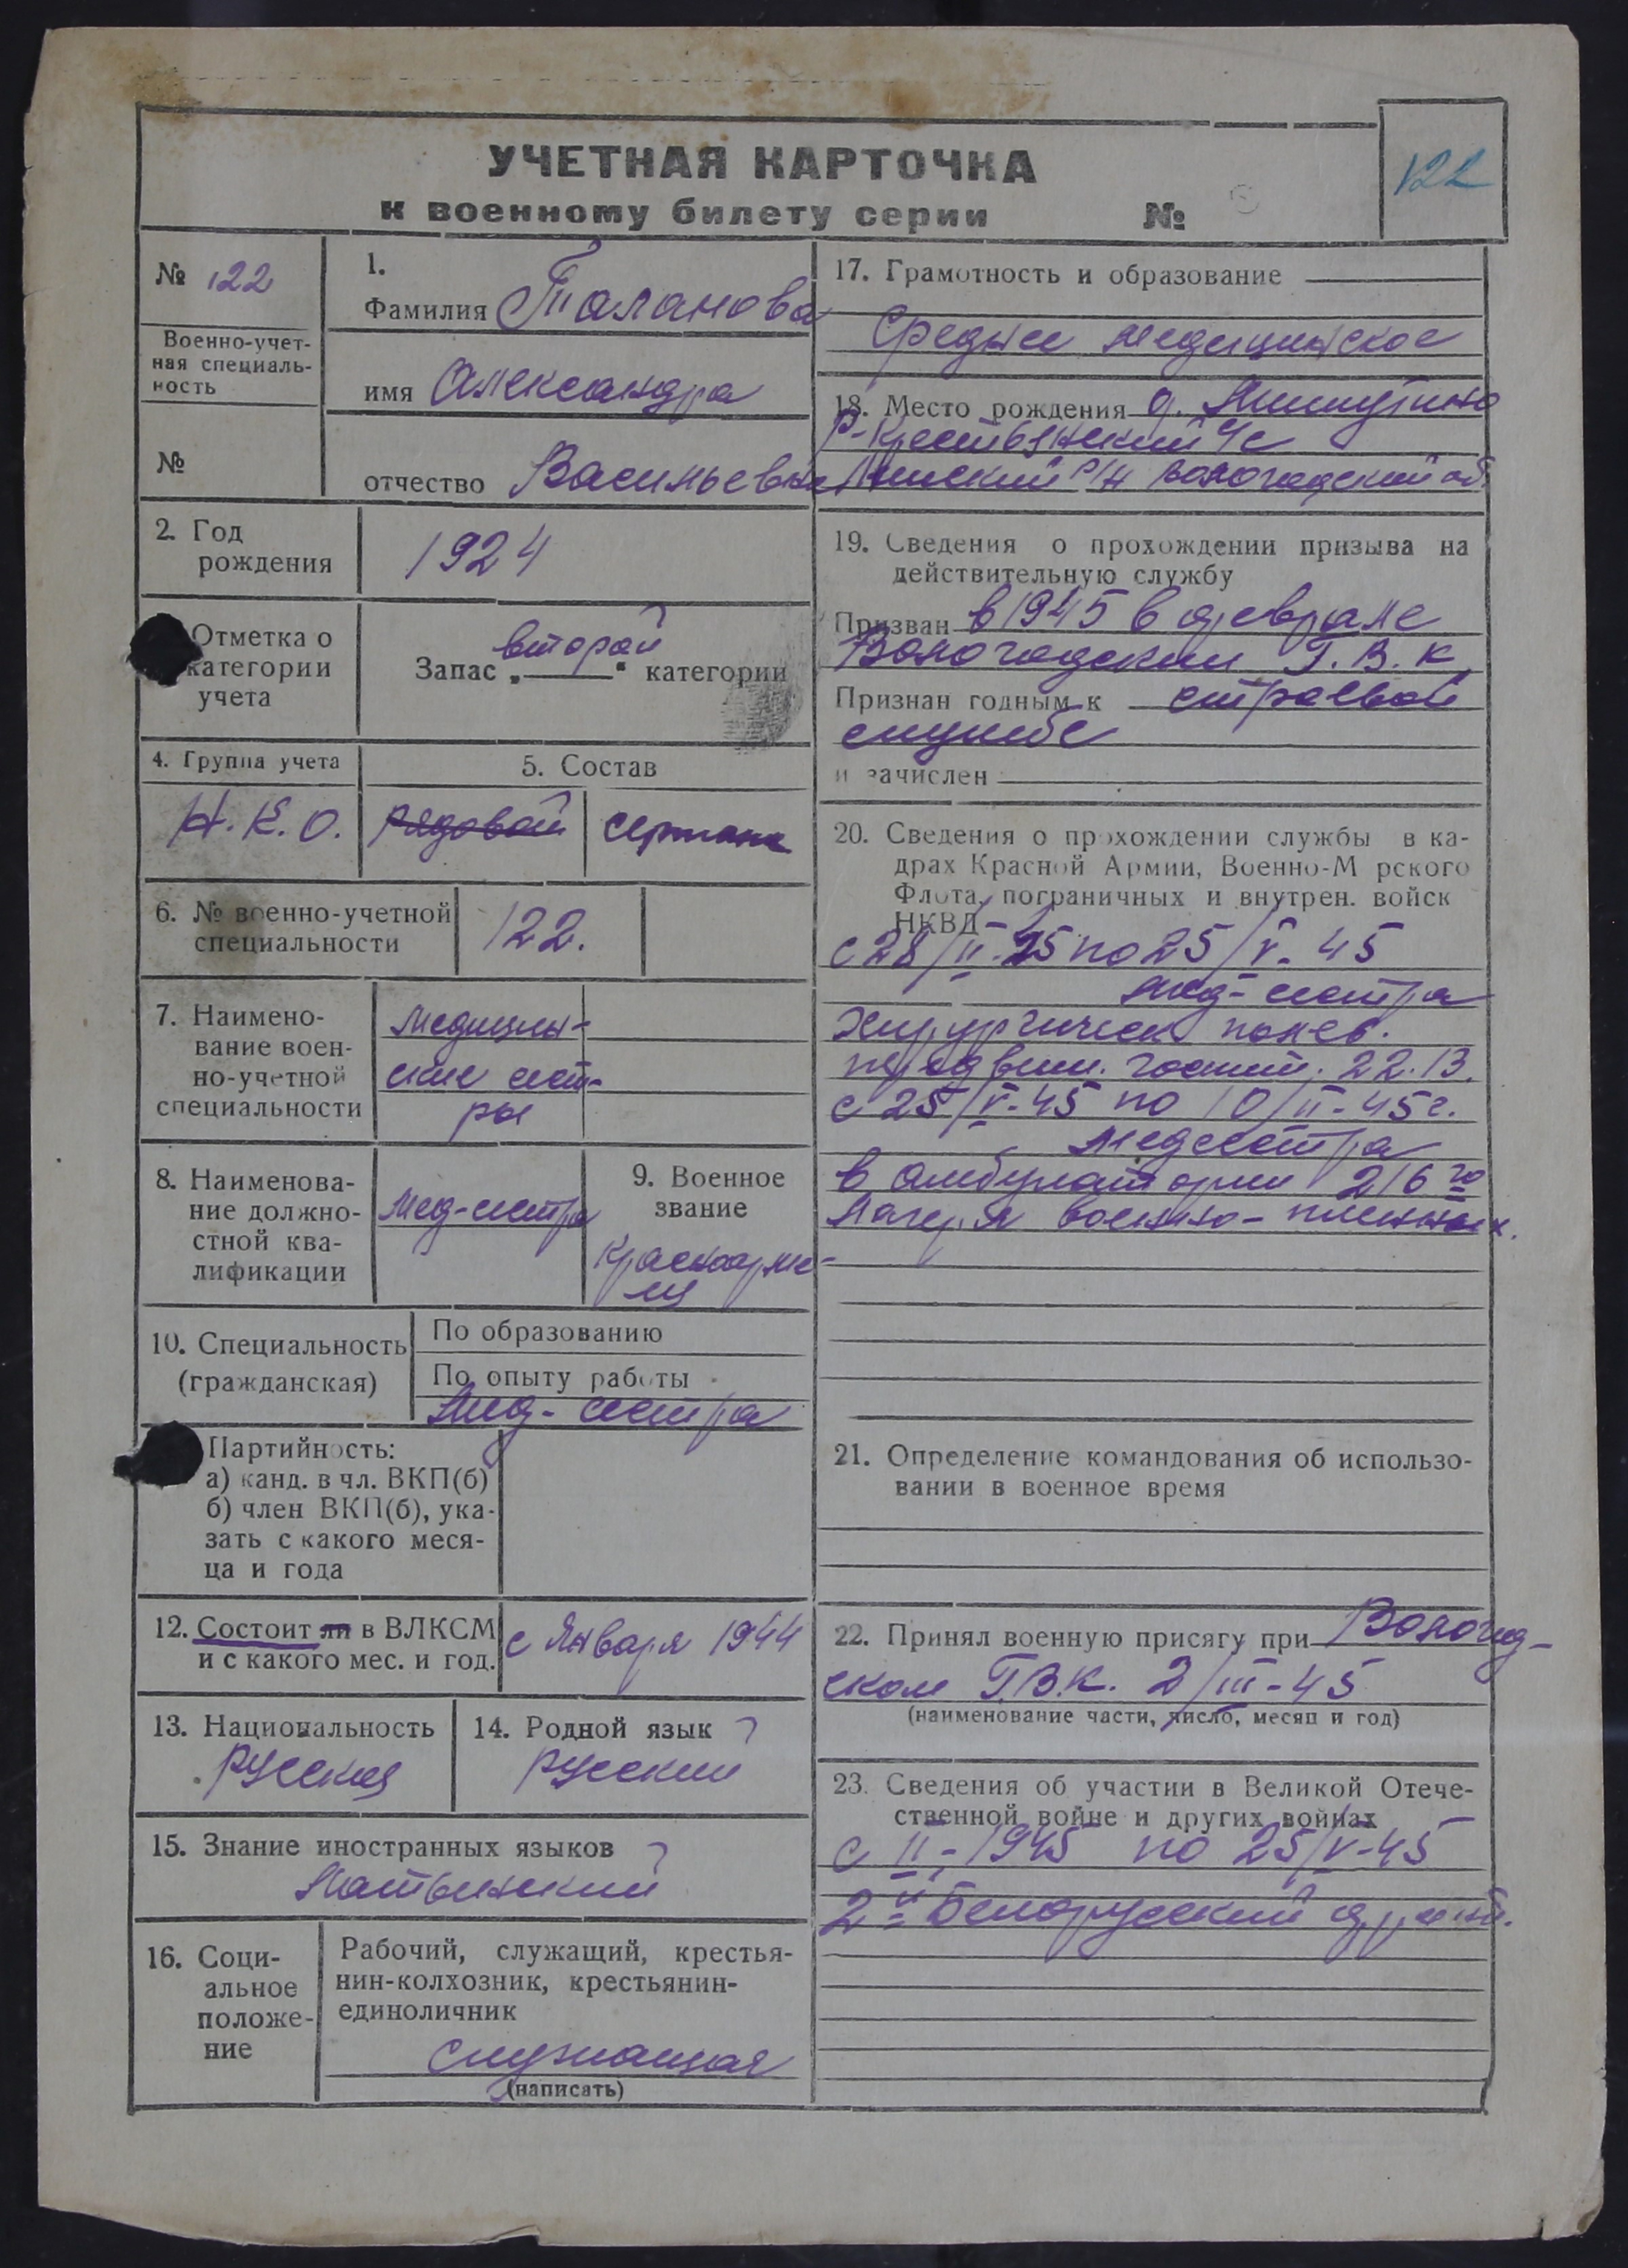 УЧЕТНАЯ КАРТОЧКА
к военному билету серии №
122
№ 122
Военно-учет-
ная специаль-
ность
№
1.
Фамилия Таланова
имя Александра
отчество Васильевна
2. Год
рождения
1924
Отметка о
категории
учета
Запас „второй“ категории
4. Группа учета
Н.К.О.
5. Состав
рядовой
6. № военно-учетной
специальности
122.
7. Наимено-
вание воен-
но-учетной
специальности
медицин-
ские сест-
ры
8. Наименова-
ние должно-
стной ква-
лификации
мед-сестра
9. Военное
звание
Красноарме-
ец
10. Специальность
(гражданская)
По образованию
По опыту работы
мед-сестра
Партийность:
а) канд. в чл. ВКП(б)
б) член ВКП(б), ука-
зать с какого меся-
ца и года
12. Состоит ли в ВЛКСМ
и с какого мес. и год.
с Января 1944
13. Национальность
русская
14. Родной язык
русский
15. Знание иностранных языков
Латынский
16. Соци-
альное
положе-
ние
Рабочий, служащий, крестья-
нин-колхозник, крестьянин-
единоличник
служащая
(написать)
17. Грамотность и образование
Среднее медицинское
18. Место рождения д.
Р-Крестьянский с/с
р/н Вологодской об.
19. Сведения о прохождении призыва на
действительную службу
Призван в 1945 в феврале
Вологодским Г.В.К
Признан годным к строевой
службе
и зачислен
20. Сведения о прохождении службы в ка-
драх Красной Армии, Военно-М рского
Флота, пограничных и внутрен. войск
НКВД
с 28/II-45 по 25/V-45
мед-сестра
Хирургическ полев.
передвиж. госпит. 22.13.
с 25/V-45 по 10/II-45г.
медсестра
в амбулатории 216го
лагеря военно-пленных.
21. Определение командования об использо-
вании в военное время
22. Принял военную присягу при Вологод-
ском Г.В.К. 2/III-45
(наименование части, число, месяц и год)
23. Сведения об участии в Великой Отече-
ственной войне и других войнах
с II-1945 по 25/V-45
2й Белорусский фронт.